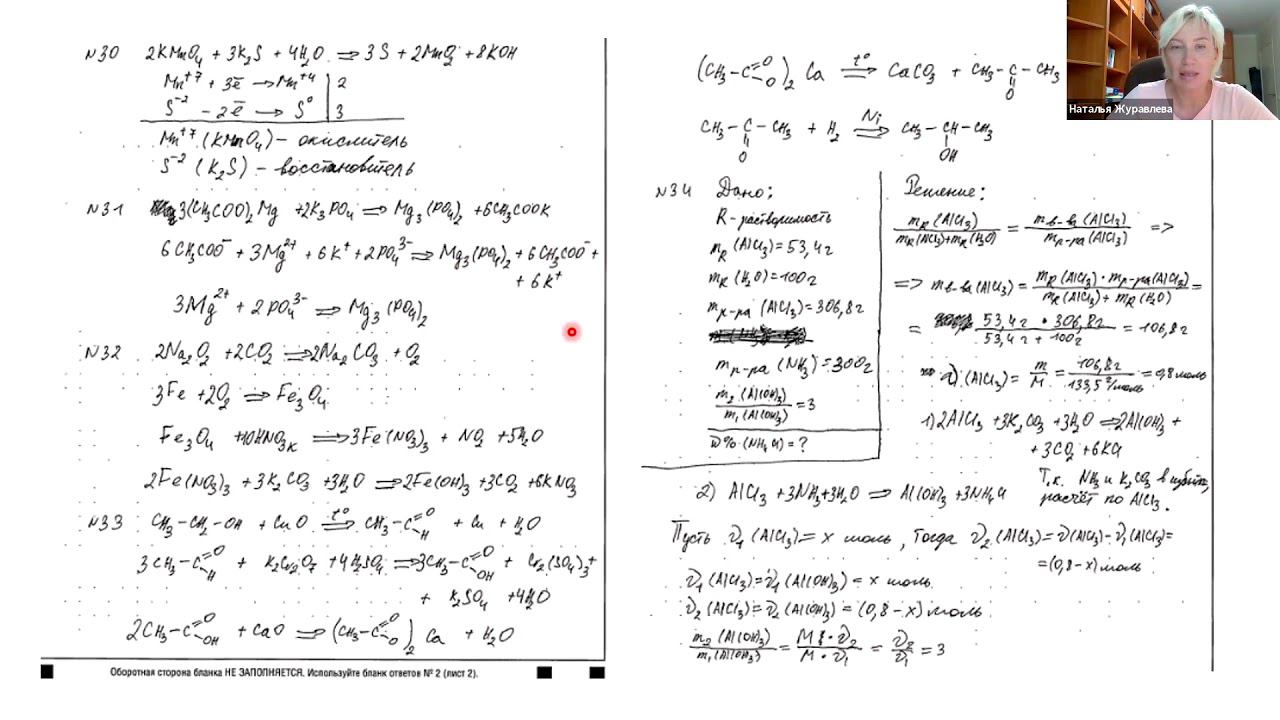 N30 2KMnO4 + 3K2S + 4H2O => 3S + 2MnO2 + 8KOH
Mn+7 + 3e̅ → Mn+4 | 2
S-2 - 2e̅ → S0 | 3
Mn+7 (KMnO4) – окислитель
S-2 (K2S) – восстановитель
N31 3(CH3COO)2Mg + 2K3PO4 => Mg3(PO4)2 + 6CH3COOK
6CH3COO- + 3Mg2+ + 6K+ + 2PO43- => Mg3(PO4)2 + 6CH3COO- +
+ 6K+
3Mg2+ + 2PO43- => Mg3(PO4)2
N32 2Na2O2 + 2CO2 => 2Na2CO3 + O2
3Fe + 2O2 => Fe3O4
Fe3O4 + 10HNO3к => 3Fe(NO3)3 + NO2 + 5H2O
2Fe(NO3)3 + 3K2CO3 + 3H2O => 2Fe(OH)3 + 3CO2 + 6KNO3
N33 CH3-CH2-OH + CuO =t°=> CH3-C(=O)-H + Cu + H2O
3CH3-C(=O)-H + K2Cr2O7 + 4H2SO4 => 3CH3-C(=O)-OH + Cr2(SO4)3 +
+ K2SO4 + 4H2O
2CH3-C(=O)-OH + CaO => (CH3-C(=O)-O)2 Ca + H2O
Оборотная сторона бланка НЕ ЗАПОЛНЯЕТСЯ. Используйте бланк ответов № 2 (лист 2).
(CH3-C(=O)-O)2 Ca =t°=> CaCO3 + CH3-C(=O)-CH3
CH3-C(=O)-CH3 + H2 =Ni=> CH3-CH(OH)-CH3
N34 Дано:
R - растворимость
mR (AlCl3) = 53,4г
mR (H2O) = 100г
mр-ра (AlCl3) = 306,8г
mр-ра (NH3) = 300г
m2 (Al(OH)3) / m1 (Al(OH)3) = 3
w% (NH4Cl) = ?
Решение:
mR (AlCl3) / mR (AlCl3) + mR (H2O) = mв-ва (AlCl3) / mр-ра (AlCl3) =>
=> mв-ва (AlCl3) = mR (AlCl3) · mр-ра (AlCl3) / mR (AlCl3) + mR (H2O) =
= 53,4г · 306,8г / 53,4г + 100г = 106,8г
ν (AlCl3) = m / M = 106,8г / 133,5г/моль = 0,8 моль
1) 2AlCl3 + 3K2CO3 + 3H2O => 2Al(OH)3 +
+ 3CO2 + 6KCl
Т.к. NH3 и K2CO3 в избытке,
расчёт по AlCl3.
2) AlCl3 + 3NH3 + 3H2O => Al(OH)3 + 3NH4Cl
Пусть ν1 (AlCl3) = x моль, тогда ν2 (AlCl3) = ν(AlCl3) - ν1(AlCl3) =
= (0,8 - x) моль
ν1 (AlCl3) = ν1 (Al(OH)3) = x моль.
ν2 (AlCl3) = ν2 (Al(OH)3) = (0,8 - x) моль
m2 (Al(OH)3) / m1 (Al(OH)3) = M · ν2 / M · ν1 = ν2 / ν1 = 3
Наталья Журавлева